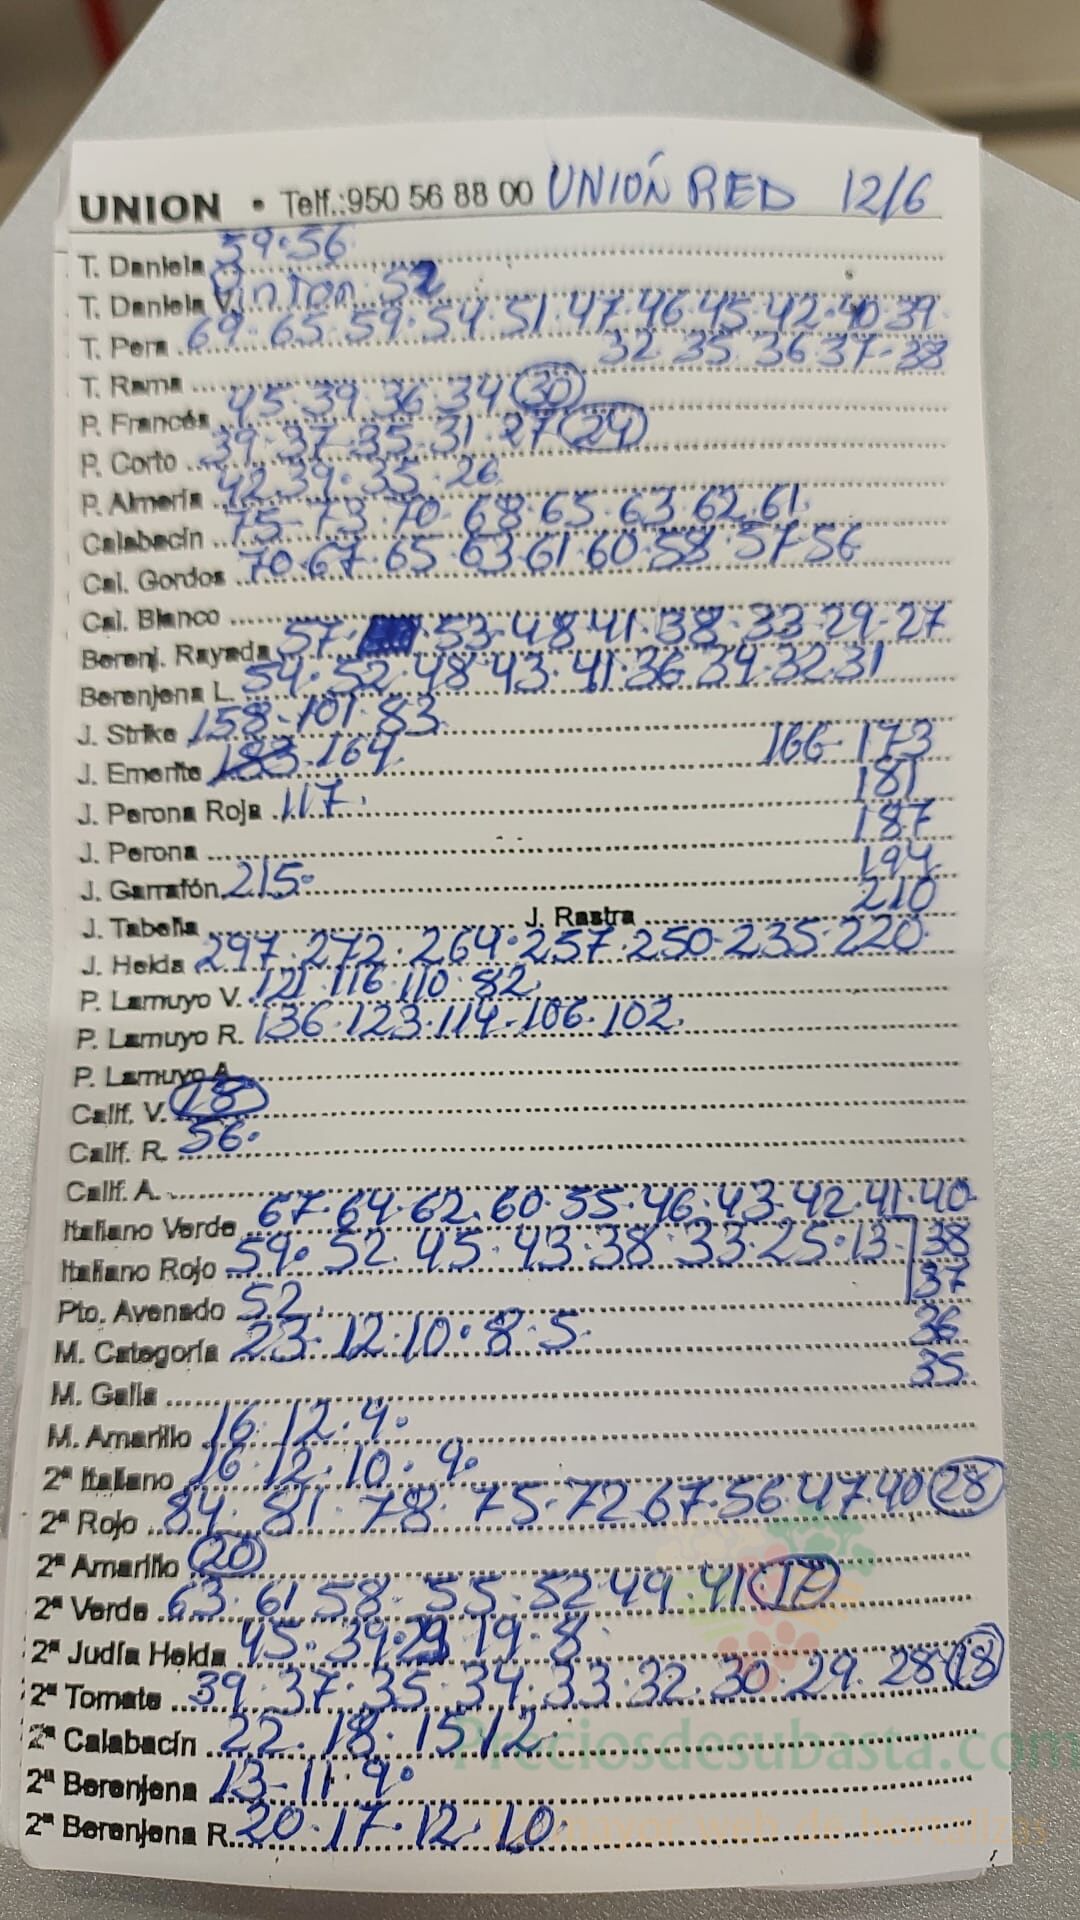 UNION • Telf.:950 56 88 00 UNIÓN RED 12/6
T. Daniela 59·56
T. Daniela V. Pinton 52
T. Pera 69·65·59·54·51·47·46·45·42·40·39
32 35 36 37-38
T. Rama
P. Francés 45·39·36·34 (30)
P. Corto 39·37·35·31·27 (24)
P. Almería 42·39·35·26
Calabacín 75-73·70·68·65·63·62·61
Cal. Gordos 70·67·65·63·61·60·58·57·56
Cal. Blanco
Berenj. Rayada 57· ·53·48·41·38·33·29·27
Berenjena L. 54·52·48·43·41·36·34·32·31
J. Strike 158-101·83
J. Emerite 183·164 166-173
J. Perona Roja 117· 181
J. Perona 187
J. Garrafón 215· 194
J. Tabella J. Rastra 210
J. Helda 297·272·264·257·250·235·220
P. Lamuyo V. 121·116·110·82
P. Lamuyo R. 136·123·114·106·102
P. Lamuyo A.
Calif. V. (28)
Calif. R. 56·
Calif. A.
Italiano Verde 67·64·62·60·55·46·43·42·41·40
Italiano Rojo 59·52·45·43·38·33·25·13 38
37
Pto. Avenado 52
M. Categoría 23·12·10·8·5 36
M. Galia 35
M. Amarillo 16·12·9·
2ª Italiano 16·12·10·9·
2ª Rojo 84·81·78·75·72·67·56·47·40 (28)
2ª Amarillo (20)
2ª Verde 63·61·58·55·52·49·41 (17)
2ª Judía Helda 45·39· 19·8
2ª Tomate 39·37·35·34·33·32·30·29·28 (18)
2ª Calabacín 22·18·15·12
2ª Berenjena 13-11·9·
2ª Berenjena R. 20·17·12·10
Preciosdesubasta.com
mayor web de hortalizas